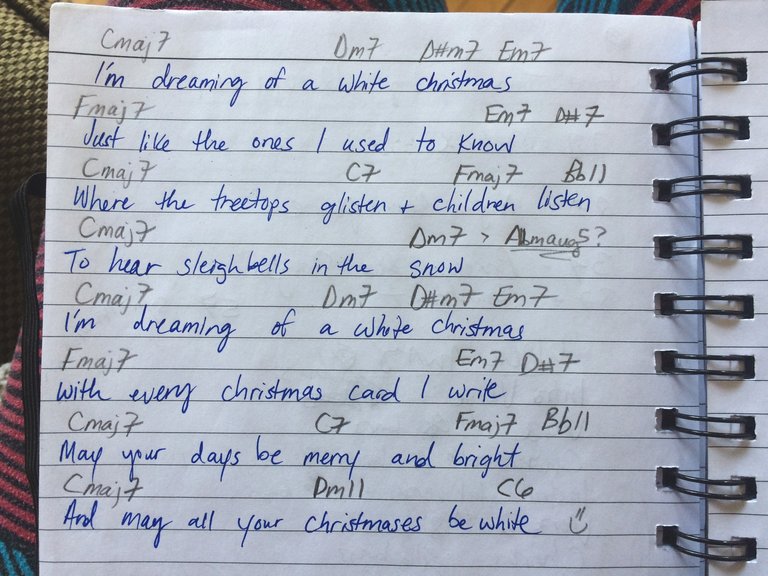 Cmaj7 Dm7 D#m7 Em7
I'm dreaming of a white christmas
Fmaj7 Em7 D#7
Just like the ones I used to know
Cmaj7 C7 Fmaj7 Bb11
Where the treetops glisten + children listen
Cmaj7 Dm7 > Abmaug5?
To hear sleighbells in the snow
Cmaj7 Dm7 D#m7 Em7
I'm dreaming of a white christmas
Fmaj7 Em7 D#7
With every christmas card I write
Cmaj7 C7 Fmaj7 Bb11
May your days be merry and bright
Cmaj7 Dm11 C6
And may all your christmases be white